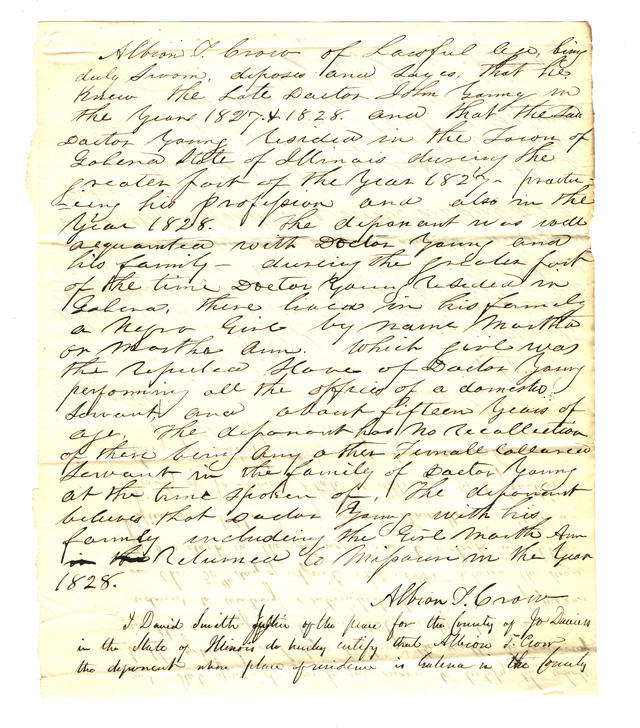 Albion T. Crow of Lawful Age, being
duly Sworn, deposes and Sayes, that he
Knew the Late Doctor John Young in
the Years 1827 & 1828 and that the Said
Doctor Young resided in the Town of
Galena State of Illinois dureing the
greater part of the Year 1827 - practic-
-eing his Profession and also in the
Year 1828. The deponant was well
acquainted with Doctor Young and
his family - dureing the greater part
of the time Doctor Young Resided in
Galena, there lived in his family
a Negro Girl by name Martha
or Martha Ann. Which girl was
the reputed Slave of Doctor Young
performing all the offices of a domestic
Servant and about fifteen Years of
age, The deponant has no recollection
of there being any other Female Collared
Servant in the family of Doctor Young
at the time spoken of, The deponant
believes that Doctor Young with his
family including the Girl Marth Ann
Returned to Missouri in the Year
1828.
Albion T. Crow
I David Smith Justice of the peace for the County of Jo Daviess
in the State of Illinois do hereby certify that Albion T. Crow
the deponent whose place of residence is Galena in the County